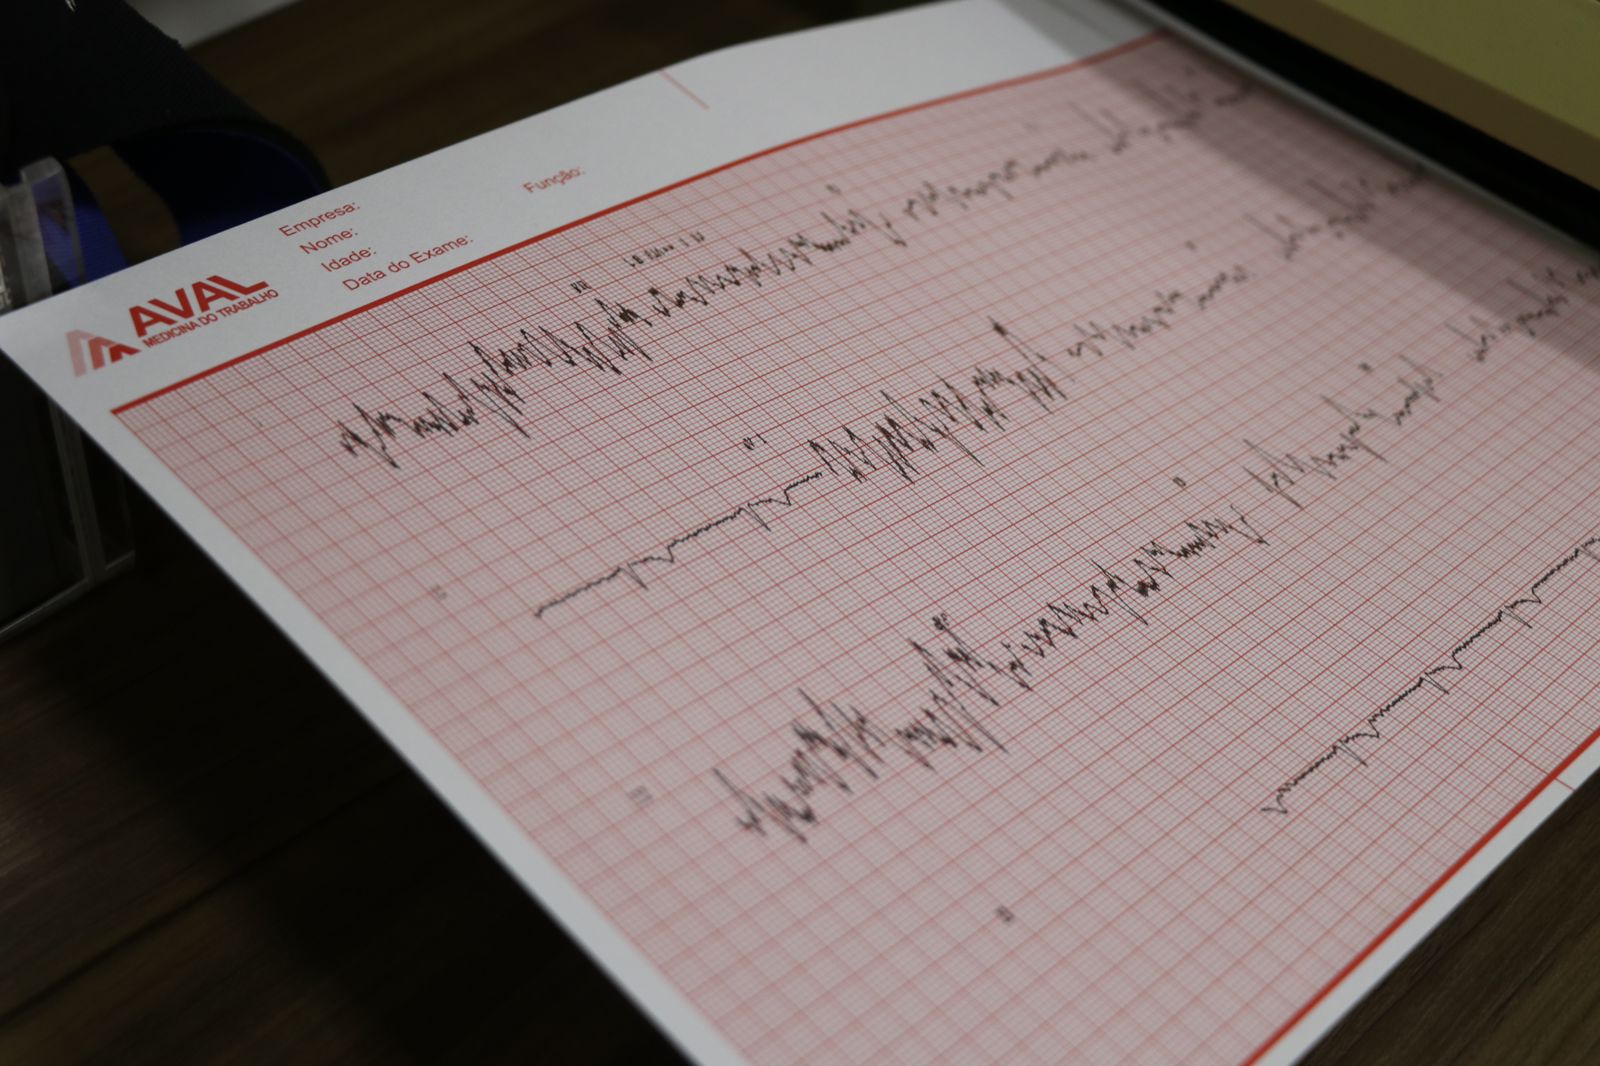 AVAL
MEDICINA DO TRABALHO
Empresa:
Nome:
Idade:
Data do Exame:
Função: